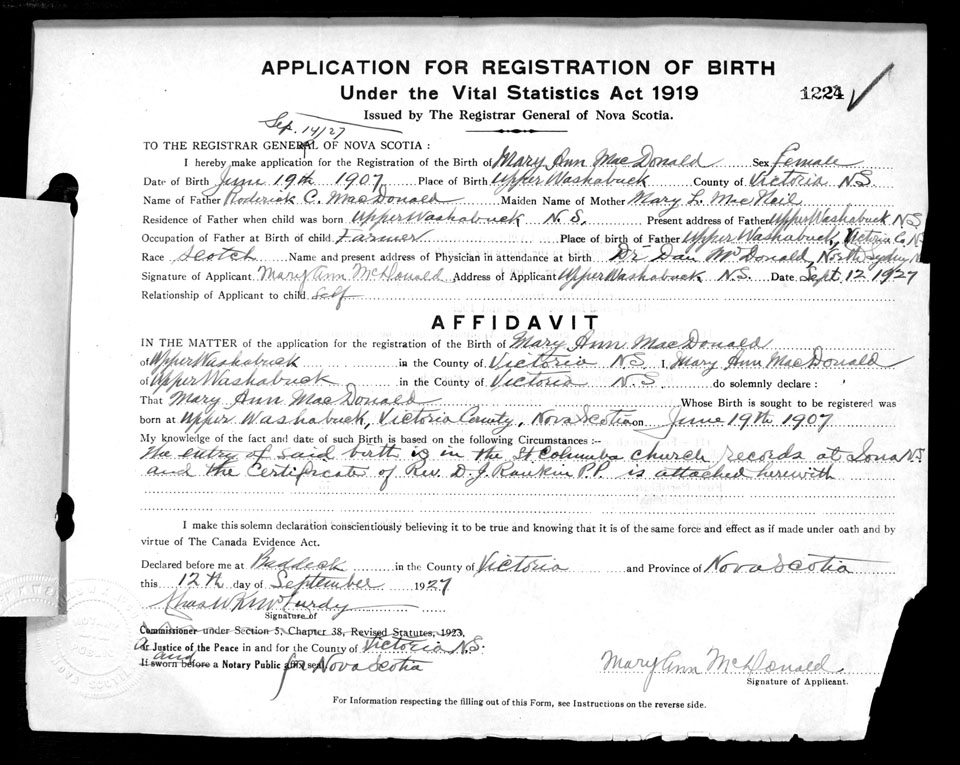 APPLICATION FOR REGISTRATION OF BIRTH
Under the Vital Statistics Act 1919
1224
Issued by The Registrar General of Nova Scotia.
Sep. 14/27
TO THE REGISTRAR GENERAL OF NOVA SCOTIA :
I hereby make application for the Registration of the Birth of Mary Ann MacDonald Sex Female
Date of Birth June 19th 1907 Place of Birth Upper Washabuck County of Victoria N.S.
Name of Father Roderick C. MacDonald Maiden Name of Mother Mary L. MacNeil
Residence of Father when child was born Upper Washabuck N.S. Present address of Father Upper Washabuck NS
Occupation of Father at Birth of child Farmer Place of birth of Father Upper Washabuck, Victoria Co. N.
Race Scotch Name and present address of Physician in attendance at birth Dr. Dan McDonald, North Sydney N
Signature of Applicant Mary Ann McDonald Address of Applicant Upper Washabuck N.S. Date Sept 12 1927
Relationship of Applicant to child self
AFFIDAVIT
IN THE MATTER of the application for the registration of the Birth of Mary Ann MacDonald
of Upper Washabuck in the County of Victoria N.S. I, Mary Ann MacDonald
of Upper Washabuck in the County of Victoria N.S. do solemnly declare :
That Mary Ann MacDonald Whose Birth is sought to be registered was
born at Upper Washabuck, Victoria County, Nova Scotia on June 19th 1907
My knowledge of the fact and date of such Birth is based on the following Circumstances :--
The entry of said birth is in the St Columba church records at Iona N.S.
and the Certificate of Rev. D. J. Rankin P.P. is attached herewith
I make this solemn declaration conscientiously believing it to be true and knowing that it is of the same force and effect as if made under oath and by
virtue of The Canada Evidence Act.
Declared before me at Baddeck in the County of Victoria and Province of Nova Scotia
this 12th day of September 1927
Signature of
Commissioner under Section 5, Chapter 38, Revised Statutes, 1923,
Or Justice of the Peace in and for the County of Victoria N.S.
and
If sworn before a Notary Public affix seal for Nova Scotia
Mary Ann McDonald
Signature of Applicant.
For Information respecting the filling out of this Form, see Instructions on the reverse side.